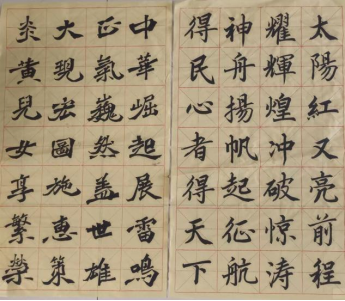 太陽紅又亮前程
耀輝煌冲破惊涛
神舟揚帆起征航
得民心者得天下
中華崛起展雷鳴
正氣巍然盖世雄
大現宏圖施恵策
炎黄兒女享繁榮